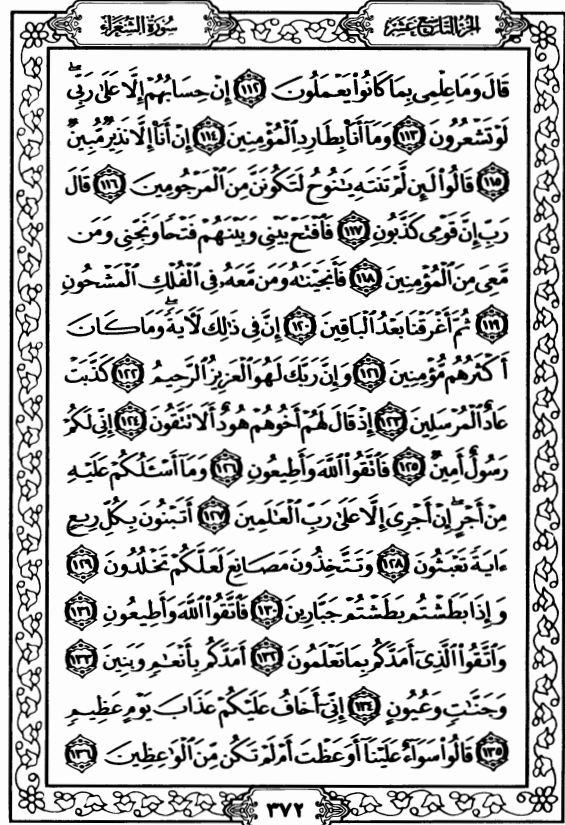 سُورَةُ الشُّعَرَاءِ
الجُزْءُ التَّاسِعَ عَشَرَ
قَالَ وَمَا عِلْمِى بِمَا كَانُوا۟ يَعْمَلُونَ ﴿١١٢﴾ إِنْ حِسَابُهُمْ إِلَّا عَلَىٰ رَبِّىۖ
لَوْ تَشْعُرُونَ ﴿١١٣﴾ وَمَآ أَنَا۠ بِطَارِدِ ٱلْمُؤْمِنِينَ ﴿١١٤﴾ إِنْ أَنَا۠ إِلَّا نَذِيرٌ مُّبِينٌ
﴿١١٥﴾ قَالُوا۟ لَئِن لَّمْ تَنتَهِ يَـٰنُوحُ لَتَكُونَنَّ مِنَ ٱلْمَرْجُومِينَ ﴿١١٦﴾ قَالَ
رَبِّ إِنَّ قَوْمِى كَذَّبُونِ ﴿١١٧﴾ فَٱفْتَحْ بَيْنِى وَبَيْنَهُمْ فَتْحًا وَنَجِّنِى وَمَن
مَّعِىَ مِنَ ٱلْمُؤْمِنِينَ ﴿١١٨﴾ فَأَنجَيْنَـٰهُ وَمَن مَّعَهُۥ فِى ٱلْفُلْكِ ٱلْمَشْحُونِ
﴿١١٩﴾ ثُمَّ أَغْرَقْنَا بَعْدُ ٱلْبَاقِينَ ﴿١٢٠﴾ إِنَّ فِى ذَٰلِكَ لَـَٔايَةًۖ وَمَا كَانَ
أَكْثَرُهُم مُّؤْمِنِينَ ﴿١٢١﴾ وَإِنَّ رَبَّكَ لَهُوَ ٱلْعَزِيزُ ٱلرَّحِيمُ ﴿١٢٢﴾ كَذَّبَتْ
عَادٌ ٱلْمُرْسَلِينَ ﴿١٢٣﴾ إِذْ قَالَ لَهُمْ أَخُوهُمْ هُودٌ أَلَا تَتَّقُونَ ﴿١٢٤﴾ إِنِّى لَكُمْ
رَسُولٌ أَمِينٌ ﴿١٢٥﴾ فَٱتَّقُوا۟ ٱللَّهَ وَأَطِيعُونِ ﴿١٢٦﴾ وَمَآ أَسْـَٔلُكُمْ عَلَيْهِ
مِنْ أَجْرٍۖ إِنْ أَجْرِىَ إِلَّا عَلَىٰ رَبِّ ٱلْعَـٰلَمِينَ ﴿١٢٧﴾ أَتَبْنُونَ بِكُلِّ رِيعٍ
ءَايَةً تَعْبَثُونَ ﴿١٢٨﴾ وَتَتَّخِذُونَ مَصَانِعَ لَعَلَّكُمْ تَخْلُدُونَ ﴿١٢٩﴾
وَإِذَا بَطَشْتُم بَطَشْتُمْ جَبَّارِينَ ﴿١٣٠﴾ فَٱتَّقُوا۟ ٱللَّهَ وَأَطِيعُونِ ﴿١٣١﴾
وَٱتَّقُوا۟ ٱلَّذِىٓ أَمَدَّكُم بِمَا تَعْلَمُونَ ﴿١٣٢﴾ أَمَدَّكُم بِأَنْعَـٰمٍ وَبَنِينَ ﴿١٣٣﴾
وَجَنَّـٰتٍ وَعُيُونٍ ﴿١٣٤﴾ إِنِّىٓ أَخَافُ عَلَيْكُمْ عَذَابَ يَوْمٍ عَظِيمٍ
﴿١٣٥﴾ قَالُوا۟ سَوَآءٌ عَلَيْنَآ أَوَعَظْتَ أَمْ لَمْ تَكُن مِّنَ ٱلْوَٰعِظِينَ ﴿١٣٦﴾
٣٧٢